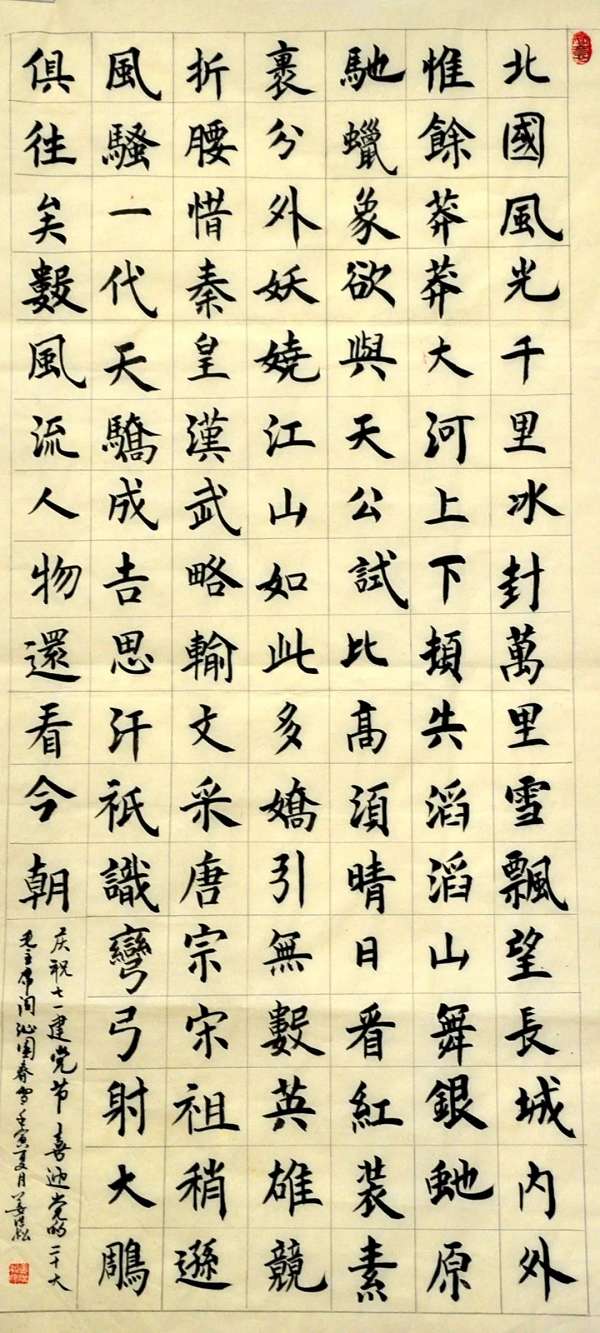 北國風光千里冰封萬里雪飄望長城内外
惟餘莽莽大河上下頓失滔滔山舞銀虵原
馳蠟象欲與天公試比高須晴日看紅裝素
裹分外妖嬈江山如此多嬌引無數英雄競
折腰惜秦皇漢武略輸文采唐宗宋祖稍遜
風騷一代天驕成吉思汗衹識彎弓射大鵰
俱往矣數風流人物還看今朝
庆祝七一建党节喜迎党的二十大
毛主席词沁园春雪壬寅夏月姜